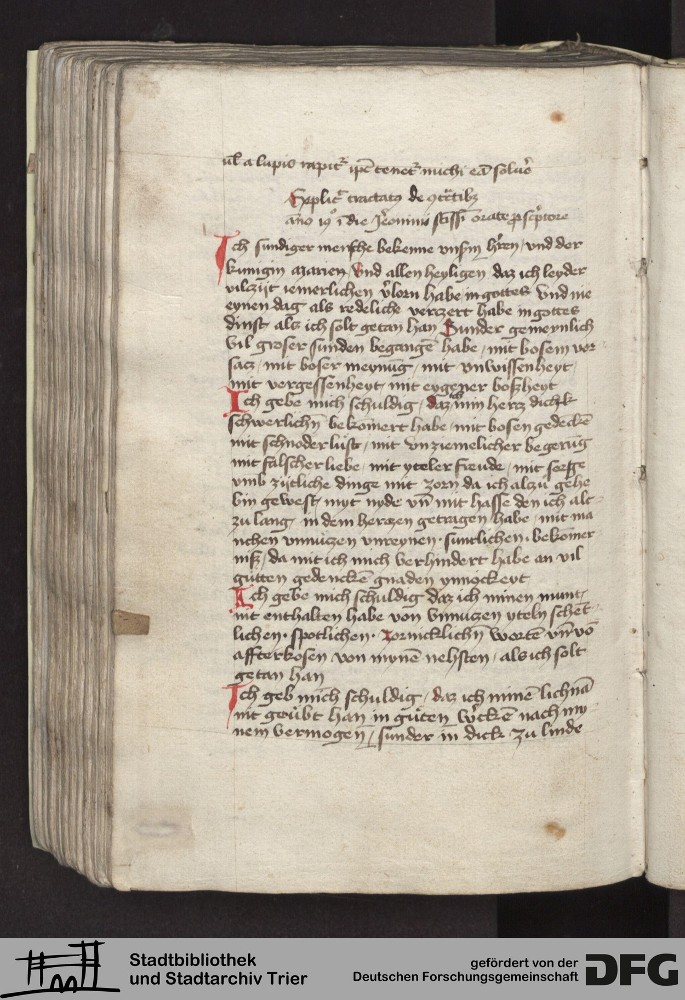 vel a lupis rapitur ipse tenetur michi eam soluere
Explicit tractatus de
anno in die Jeronimi orate pro scriptore
Ich sundiger mensche bekenne vnserm herren vnd der
kunigin Marien Vnd allen heyligen daz ich leyder
vilzijt iemerlichen verlorn habe in gottes Vnd nie
eynen dag als redeliche verzert habe in gottes
dinst als ich solt getan han Sunder gemeynlich
vil groser sunden begangē habe / mit bosem vor
sacz / mit boser meynūg / mit vnwissenheyt /
mit vergessenheyt mit eygener boßheyt
Ich gebe mich schuldig / daz min hercz dick
schwerlichn bekomert habe / mit bosen gedecken
mit schnoder lust / mit vnziemelicher begerūg
mit falscher liebe / mit yteler freude / mit sorge
vmb zijtliche dinge mit zorn da ich alzu gehe
bin gewest / myt nyde vn̄ mit hasse den ich alt
zu lang in dem herczen getragen habe / mit ma
nchen vnnuczen vnreynen suntlichen bekomer
niß / da mit ich mich verhindert habe an vil
gutten gedencken gnaden ynnockeyt
Ich gebe mich schuldig daz ich minen munt
nit enthalten habe von vnnuczen yteln schet
lichen spotlichen zornicklichn wortē vn̄ vō
affterkosen von mynē nehsten / als ich solt
getan han
Ich geb mich schuldig / daz ich minē lichnā
nit geubt han in gůten wercken nach my
nem vermogen / sunder in dick zu linde
Stadtbibliothek
und Stadtarchiv Trier
gefördert von der
Deutschen Forschungsgemeinschaft
DFG